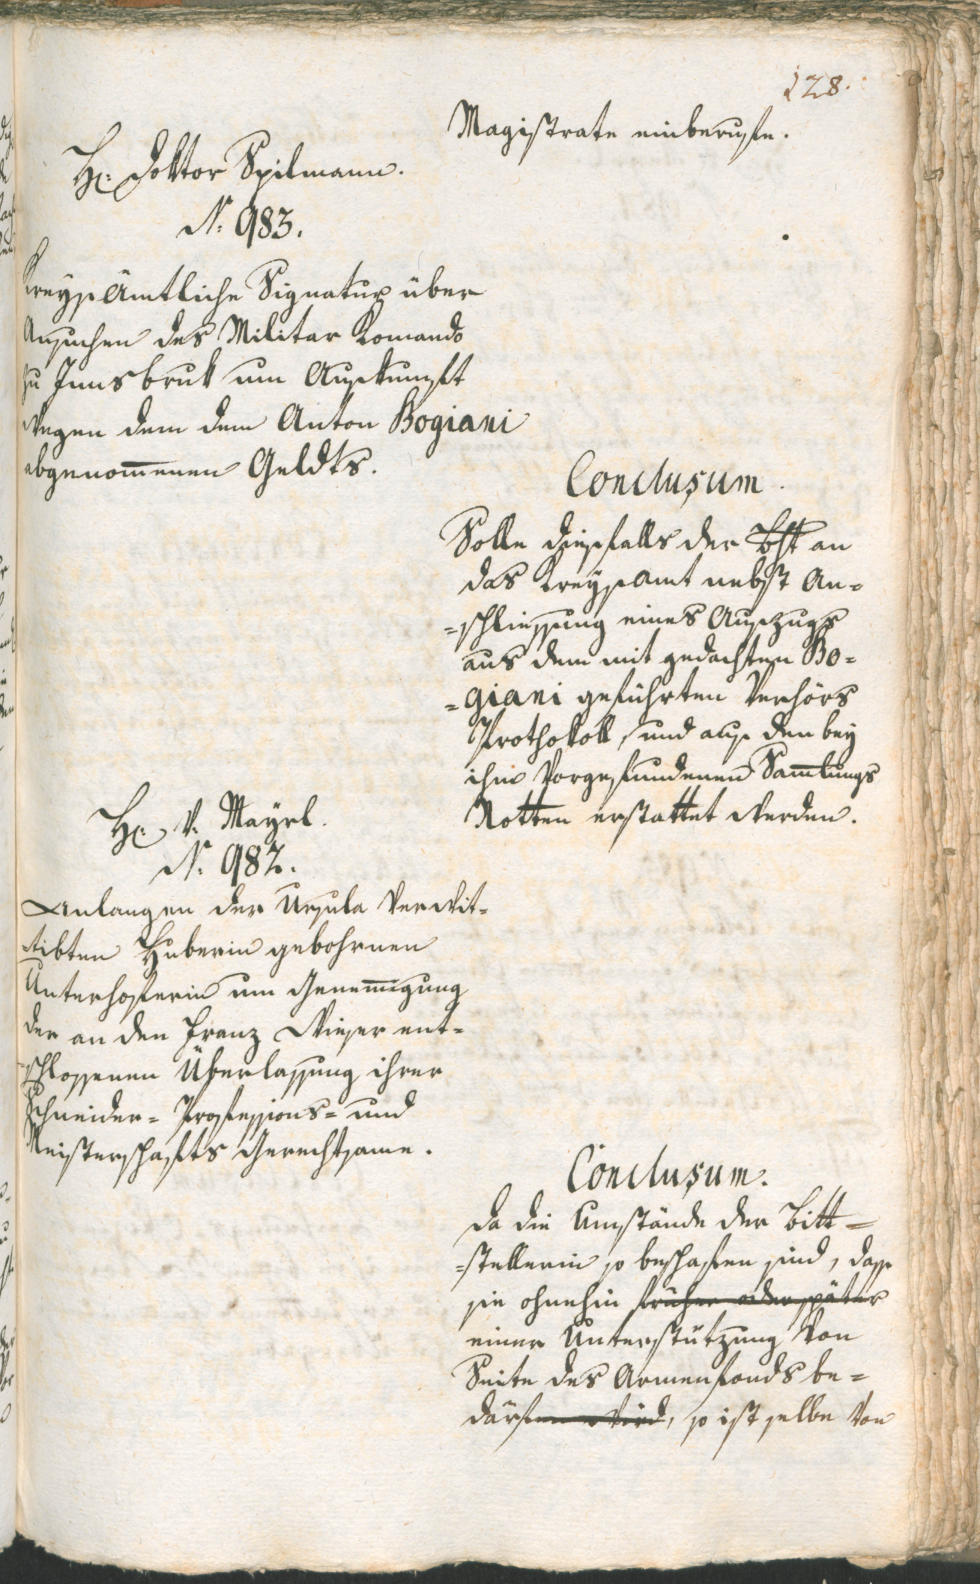 128.
Magistrate einberufen.
H: Doktor Spilmann.
N: 983.
Kreysämtliche Signatur über
Ansuchen des Militar Komando
zu Innsbruk um Auskunft
wegen dem dem Anton Bogiani
abgenom̅enen Geldts.
Conclusum.
Solle diesfalls der Bsst an
das Kreysamt nebst An=
=schliessung eines Auszugs
aus dem mit gedachten Bo=
=giani geführten Verhörs
Prothokoll, und aus den bey
ihm Vorgefundenen Sam̅lungs
Notten erstattet werden.
H: v. Mayrl.
N: 982.
Anlangen der Ursula verwit=
tibten Huberin gebohrnen
Unterhoferin um Genem̅igung
der an den Franz Wieser ent=
schlossenen Überlassung ihrer
Schneider= Professions= und
Meisterschafts Gerechtsame.
Conclusum.
Da die Umstände der Bitt=
=stellerin so beschafen sind, dass
sie ohnehin früher oder später
einer Unterstützung von
Seite des Armenfonds be=
därfen wird, so ist selbe von